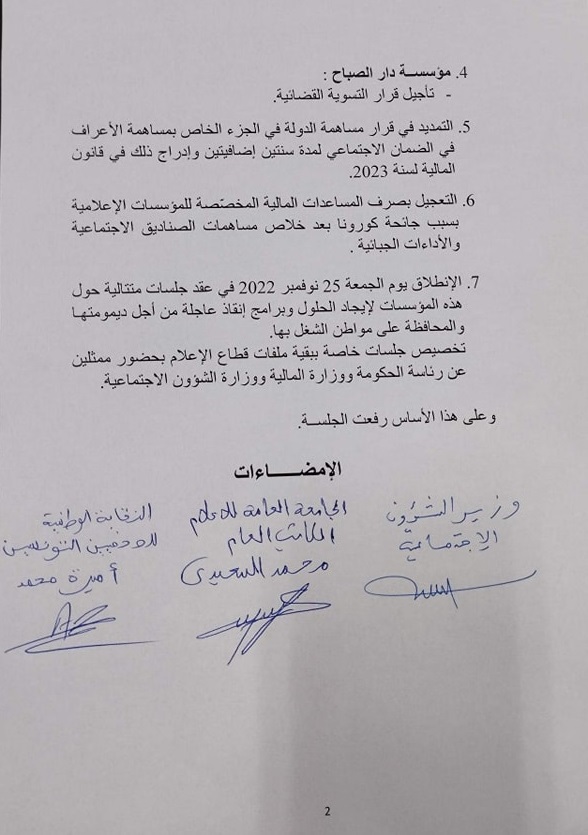 4. مؤسســة دار الصباح :
- تأجيل قرار التسوية القضائية.
5. التمديد في قرار مساهمة الدولة في الجزء الخاص بمساهمة الأعراف
في الضمان الاجتماعي لمدة سنتين إضافيتين وإدراج ذلك في قانون
المالية لسنة 2023.
6. التعجيل بصرف المساعدات المالية المخصّصة للمؤسسات الإعلامية
بسبب جائحة كورونا بعد خلاص مساهمات الصناديق الاجتماعية
والأداءات الجبائية .
7. الإنطلاق يوم الجمعة 25 نوفمبر 2022 في عقد جلسات متتالية حول
هذه المؤسسات لإيجاد الحلول وبرامج إنقاذ عاجلة من أجل ديمومتهـا
والمحافظة على مواطن الشغل بها.
تخصيص جلسات خاصة ببقية ملفات قطاع الإعلام بحضور ممثلين
عن رئاسة الحكومة ووزارة المالية ووزارة الشؤون الاجتماعية.
وعلى هذا الأساس رفعت الجلســة.
الإمضــــاءات
وزير الشؤون
الإجتماعية
الجامعة العامة للإعلام
الكاتب العام
محمد السعيدي
النقابة الوطنية
للصحفيين التونسيين
أميرة محمد
2